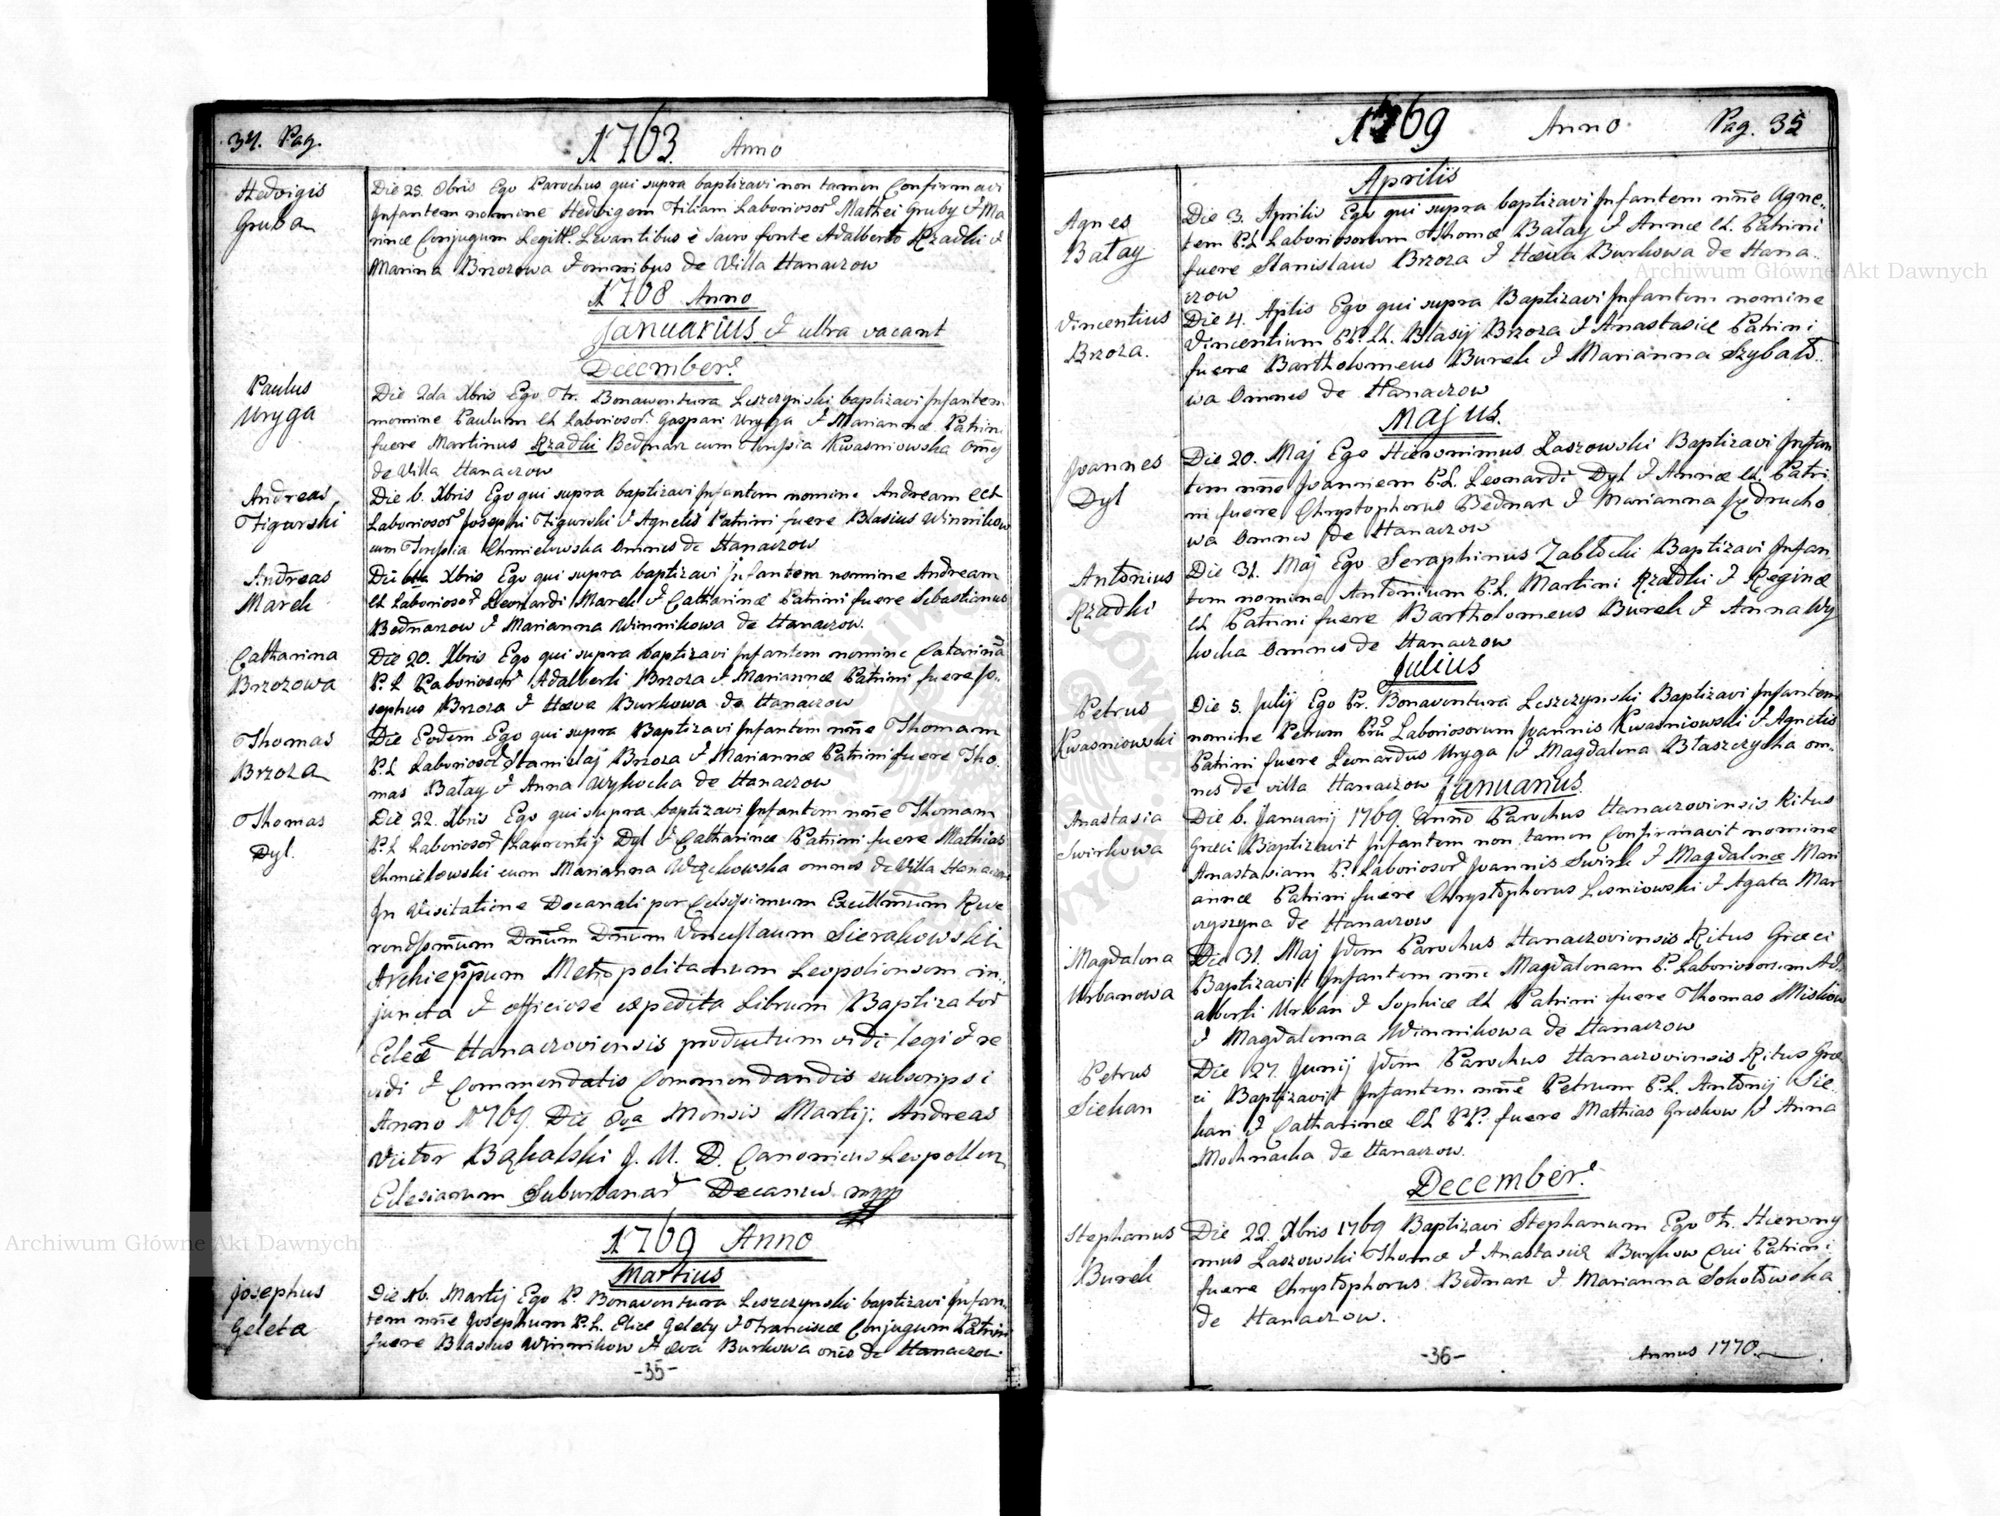 34. Pag. 1763 Anno
Hedvigis
Gruba
Die 25. Obris Ego Parochus qui supra baptizavi non tamen Confirmavi
Infantem nomine Hedvigem Filiam Laboriosor Mathei Gruby & Ma
rinæ Conjugum Legitt. Levantibus è sacro fonte Adalberto Rządki &
Marina Brzozowa & omnibus de Villa Hanaczow
1768 Anno
Januarius & ultra vacant
December
Paulus
Uryga
Die 2da Xbris Ego Fr. Bonaventura Leszczynski baptizavi Infantem
nomine Paulum LL Laboriosor. Gaspari Uryga & Mariannæ Patrini
fuere Martinus Rządki Bednarz cum Kwasniowska
de Villa Hanaczow
Andreas
Figurski
Die 6. Xbris Ego qui supra baptizavi Infantem nomine Andream
Laboriosor Josephi Figurski & Agnetis Patrini fuere Blasius Winnikow
cum Chmielowska Omnes de Hanaczow
Andreas
Marek
Die Xbris Ego qui supra baptizavi Infantem nomine Andream
LL Laboriosor Leonardi Marek & Catharinæ Patrini fuere Sebastianus
Bednarzow & Marianna Winnikowa de Hanaczow.
Catharina
Brzozowa
Die 20. Xbris Ego qui supra baptizavi Infantem nomine Catarinã
P. L Laboriosor Adalberti Brzoza & Mariannæ Patrini fuere Jo-
sephus Brzoza & Hæva Burkowa de Hanaczow
Thomas
Brzoza
Die Eodem Ego qui supra Baptizavi Infantem nñe Thomam
P. L Laboriosor Stanislaj Brzoza & Mariannæ Patrini fuere Tho.
mas Bałay & Anna Wysocka de Hanaczow
Thomas
Dyl.
Die 22. Xbris Ego qui supra baptizavi Infantem nñe Thomam
P. L Laboriosor Laurentij Dyl & Catharinæ Patrini fuere Mathias
Chmielowski cum Marianna omnes de Villa Hanaczow
In Visitatione Decanali per Celsissimum Excellmum Reve
rendssmum Dnum Dnum Venceslaum Sierakowski
Archieppum Metropolitanum Leopoliensem in-
juncta & officiose expedita Librum Baptizator
Ecleæ Hanaczoviensis productum vidi legi & re
vidi & Commendatis Commendandis subscripsi
Anno 1769. Die 8va Mensis Martij. Andreas
Victor Bąkalski J. U. D. Canonicus Leopolien
Eclesiarum Suburbanar Decanus mpp
1769 Anno
Martius
Josephus
Geleta
Die 16. Martij Ego P. Bonaventura Leszczynski baptizavi Infan-
tem nñe Josephum P. L. Eliæ Gelety & Franciscæ Conjugum Patrini
fuere Blasius Winnikow & Æva Burkowa oñes de Hanaczow.
-35-
1769 Anno Pag. 35
Aprilis
Agnes
Bałay
Die 3. Aprilis Ego qui supra baptizavi Infantem nñe Agne-
tem P.L Laboriosorum Thomæ Bałay & Annæ LL. Patrini
fuere Stanislaus Brzoza & Hæva Burkowa de Hana-
czow
Vincentius
Brzoza.
Die 4. Aplis Ego qui supra Baptizavi Infantem nomine
Vincentium PP. LL. Blasij Brzoza & Anastasiæ Patrini
fuere Bartholomeus Burek & Marianna Szybało-
wa Omnes de Hanaczow
Majus.
Joannes
Dyl
Die 20. Maj Ego Hieronimus Łaszowski Baptizavi Infan
tem nñe Joannem P.L. Leonardi Dyl & Annæ LL. Patri
ni fuere Chrystophorus Bednarz & Marianna Jędrucho
wa Omnes de Hanaczow
Antonius
Rządki
Die 31. Maj Ego Seraphinus Zabłocki Baptizavi Infan
tem nomine Antonium P. L. Martini Rządki & Reginæ
LL Patrini fuere Bartholomeus Burek & Anna Wy
socka Omnes de Hanaczow
Julius
Petrus
Kwasniowski
Die 5. Julij Ego Fr. Bonaventura Leszczynski Baptizavi Infantem
nomine Petrum Laboriosorum Joannis Kwasniowski & Agnetis
Patrini fuere Leonardus Uryga & Magdalena Błaszczycha om-
nes de villa Hanaczow Januarius
Anastasia
Swirkowa
Die 6. Januarij 1769. Anno Parochus Hanaczoviensis Ritus
Græci Baptizavit Infantem non tamen Confirmavit nomine
Anastasiam P. Laboriosor Joannis Swirk & Magdalenæ Mari
annæ Patrini fuere Chrystophorus Lesniowski & Agata Mar
czyszyna de Hanaczow
Magdalena
Urbanowa
Die 31. Maj Idem Parochus Hanaczoviensis Ritus Græci
Baptizavit Infantem nñe Magdalenam P. Laboriosorum Ad.
alberti Urban & Sophiæ LL Patrini fuere Thomas Miskow
& Magdalenna Winnikowa de Hanaczow
Petrus
Siekan
Die 27. Junij Idem Parochus Hanaczoviensis Ritus Græ
ci Baptizavit Infantem nñe Petrum P. L. Antonij Sie
kan & Catharinæ LL PP. fuere Mathias Greskow & Anna
Mochnacka de Hanaczow.
December
Stephanus
Burek
Die 22. Xbris 1769 Baptizavi Stephanum Ego Fr. Hierony
mus Łaszowski Thomæ & Anastasiæ Burkow Cui Patrini
fuere Chrystophorus Bednarz & Marianna Sokołowska
de Hanaczow.
-36- Annus 1770.
Archiwum Główne Akt Dawnych
Archiwum Główne Akt Dawnych